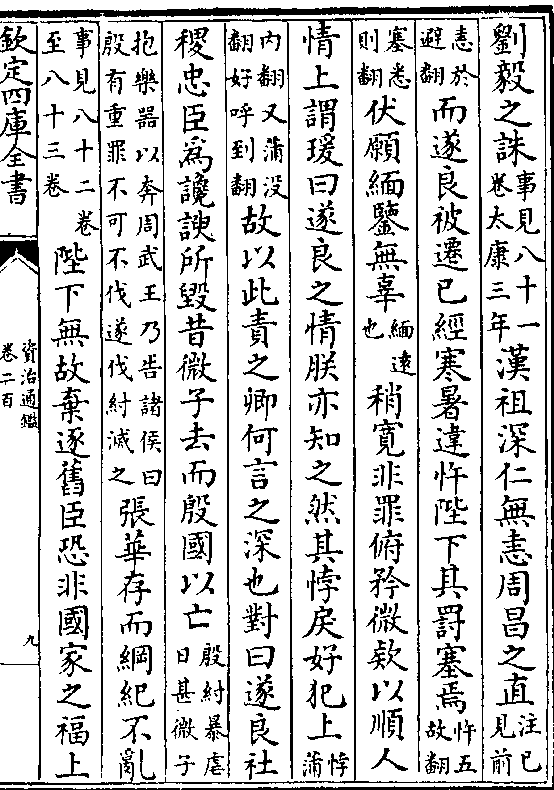 劉毅之誅事見八十一卷太康三年漢祖深仁無恚周昌之直注已見前
恚於避翻而遂良被遷已經寒暑違忤陛下其罰塞焉忤五故翻
塞悉則翻伏願緬鑒無辜緬遠也稍寛非罪俯矜微欵以順人
情上謂瑗曰遂良之情朕亦知之然其悖戾好犯上悖蒲
内翻又蒲没翻好呼到翻故以此責之卿何言之深也對曰遂良社
稷忠臣爲讒諛所毁昔微子去而殷國以亡殷紂暴虐日甚微子
抱樂器以奔周武王乃告諸侯曰殷有重罪不可不伐遂伐紂滅之張華存而綱紀不亂
事見八十二卷至八十三卷陛下無故棄逐舊臣恐非國家之福上
欽定四庫全書
資治通鑑
卷二百
九